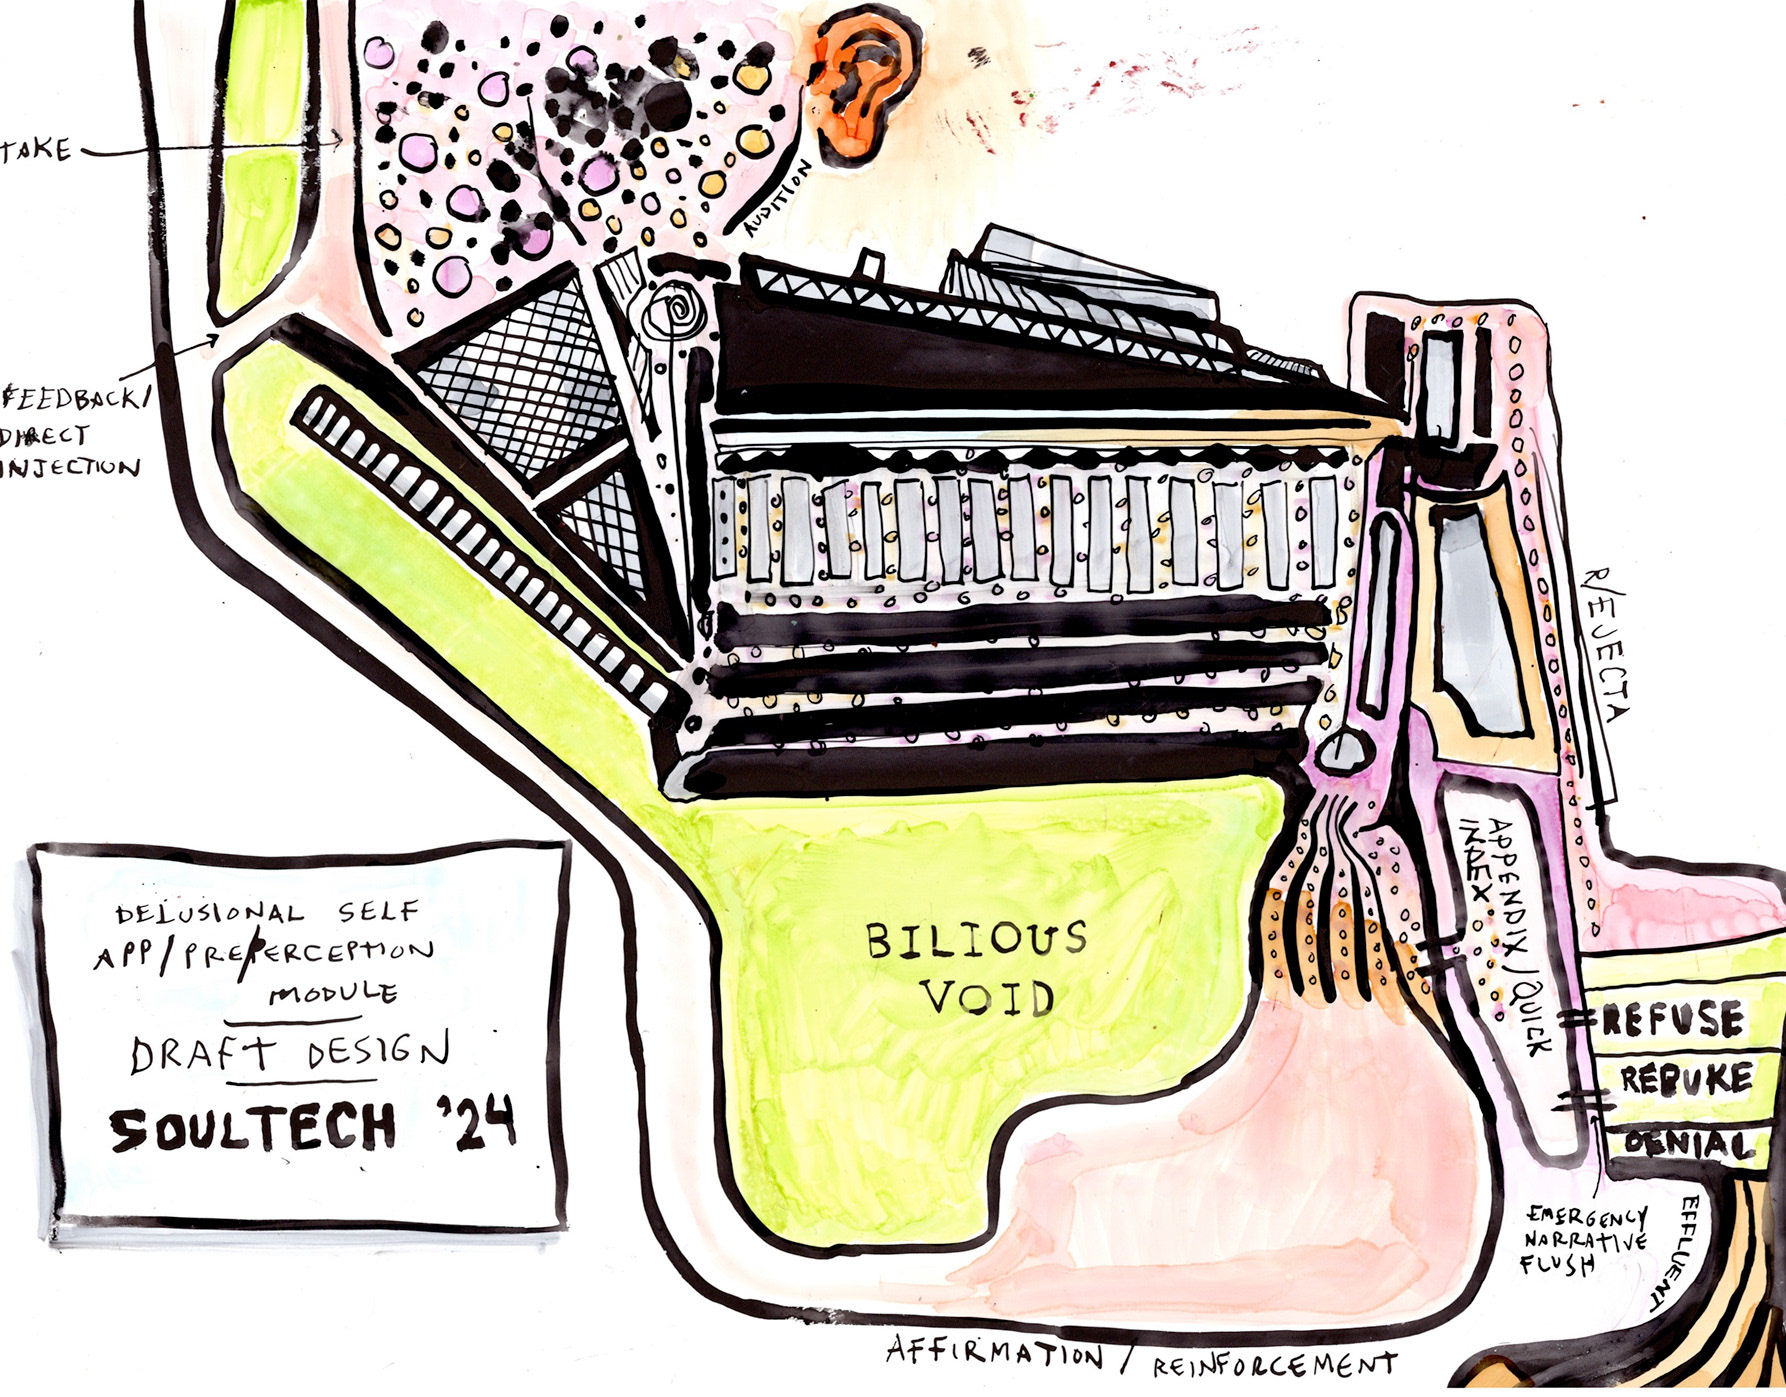 TAKE
AUDITION
FEEDBACK/
DIRECT
INJECTION
R/EJECTA
DELUSIONAL SELF
APP/PRE/PERCEPTION
MODULE
DRAFT DESIGN
SOULTECH '24
BILIOUS
VOID
APPENDIX/QUICK
INDEX
REFUSE
REBUKE
DENIAL
EMERGENCY
NARRATIVE
FLUSH
EFFLUENT
AFFIRMATION / REINFORCEMENT